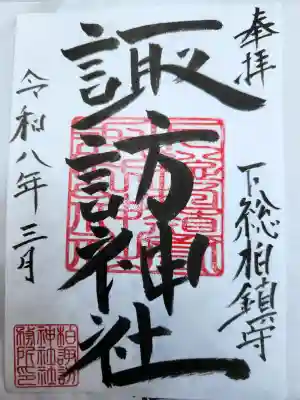 奉拝
下総柏鎮守
諏訪神社
令和八年三月
柏諏訪
神社社
務所印